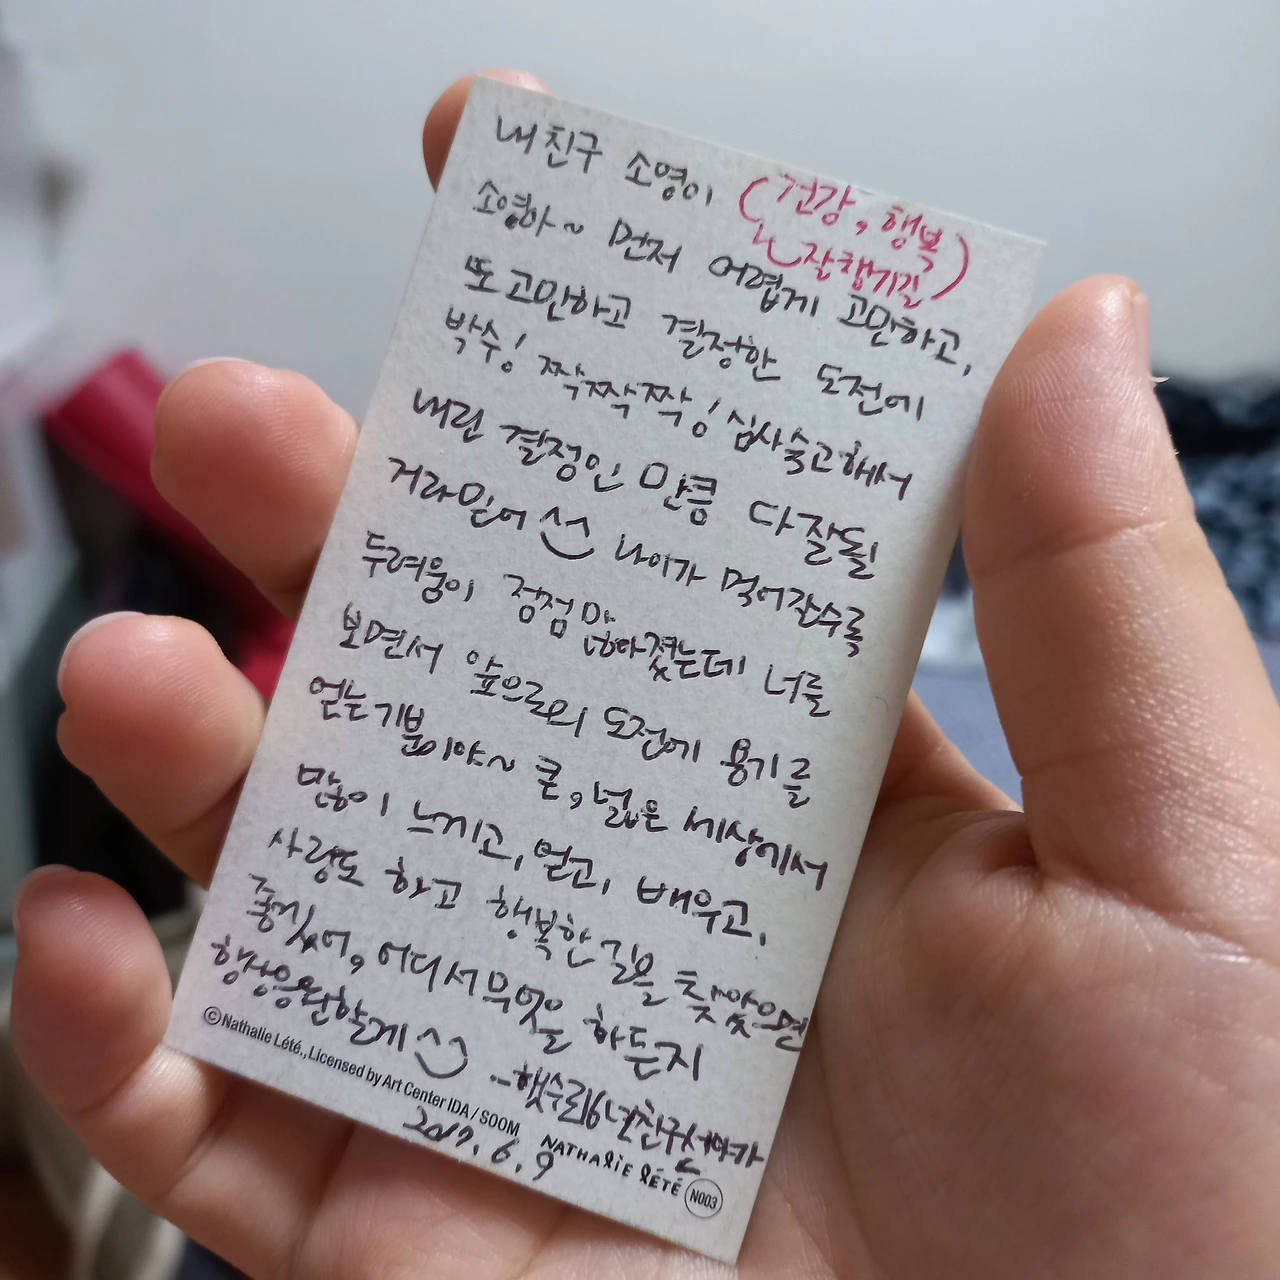 내 친구 소영이 (건강, 행복
잘 챙기길)
소영아~ 먼저 어렵게 고민하고,
또 고민하고 결정한 도전에
박수! 짝짝짝! 심사숙고해서
내린 결정인 만큼 다 잘될
거라 믿어 나이가 먹어갈수록
두려움이 점점 많아졌는데 너를
보면서 앞으로의 도전에 용기를
얻는 기분이야~ 큰, 넓은 세상에서
많이 느끼고, 얻고, 배우고,
사랑도 하고 행복한 길을 찾았으면
좋겠어, 어디서 무엇을 하든지
항상 응원할게
-햇수로 6년친구
2017. 6. 9
©Nathalie Lété., Licensed by Art Center IDA / SOOM
NATHALIE LÉTÉ N003